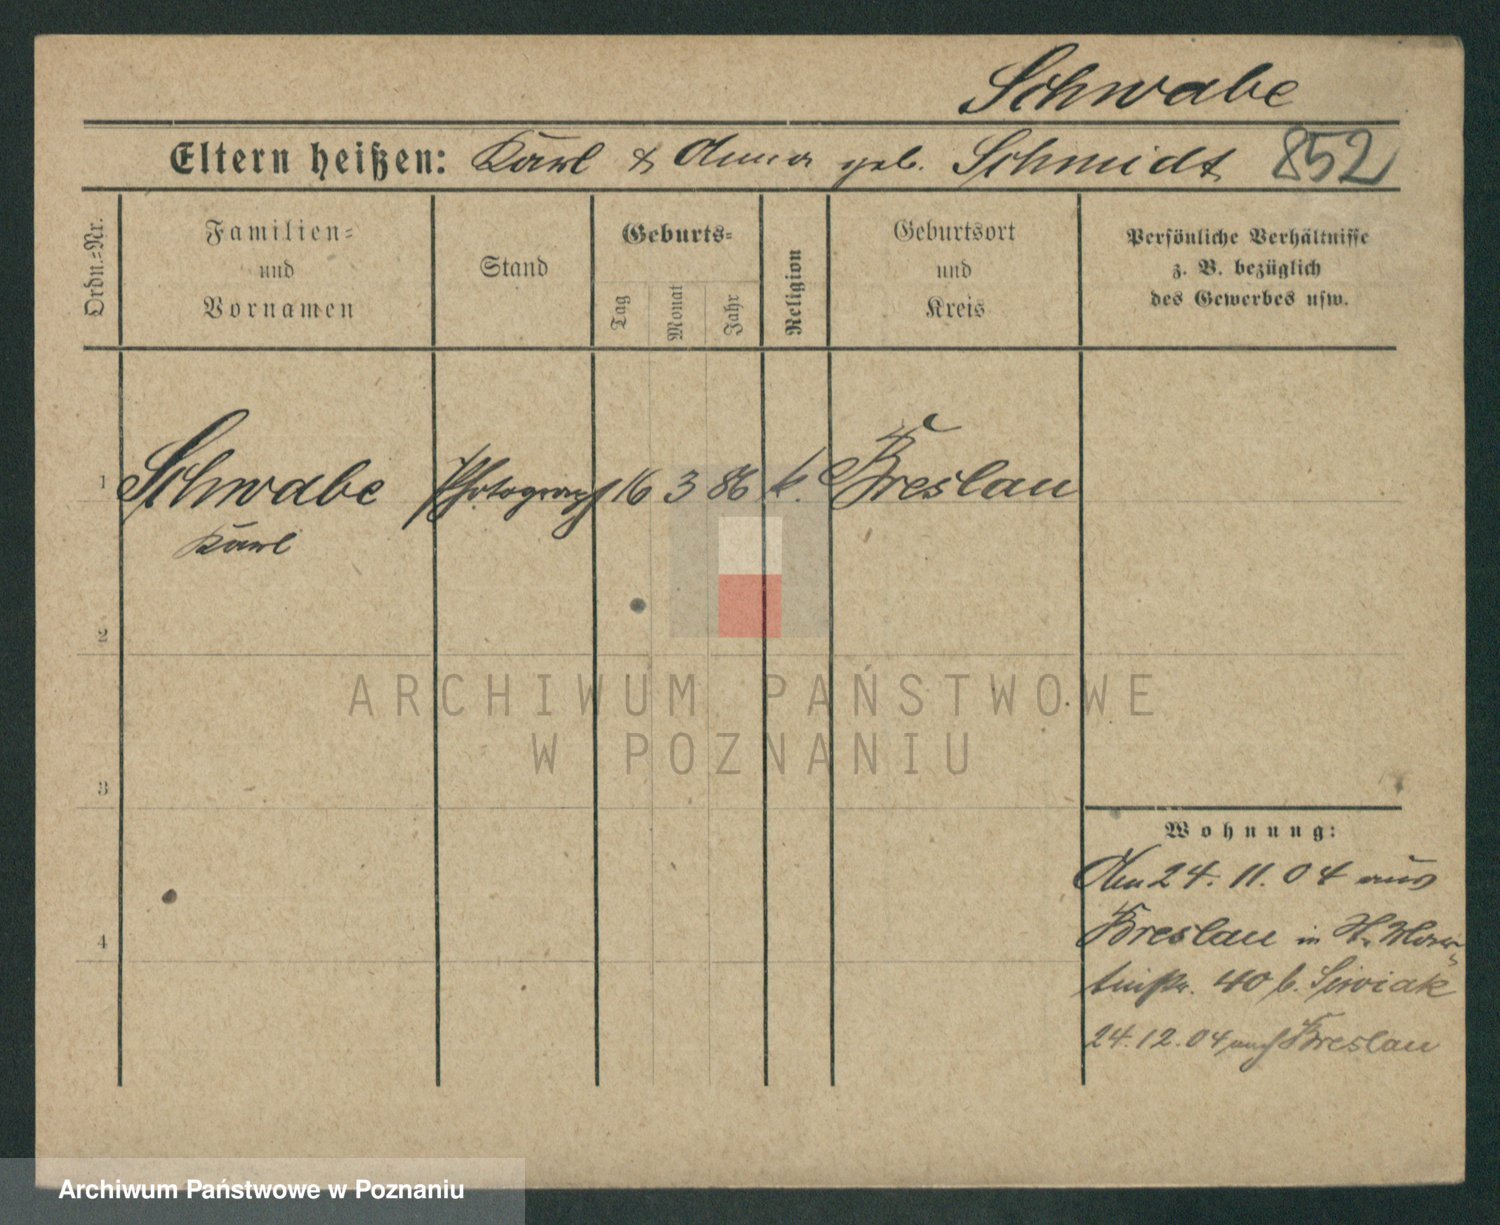 Schwabe
Eltern heißen: Karl & Anna geb. Schmidt 852
Ordn.-Nr.
Familien- und Vornamen
Stand
Geburts-
Tag
Monat
Jahr
Religion
Geburtsort und Kreis
Persönliche Verhältnisse
z. B. bezüglich
des Gewerbes usw.
1 Schwabe Photograph 16 3 86 k. Breslau
Karl
2
3
4
Wohnung:
Den 24. 11. 04 aus
Breslau in St. Mar-
tinstr. 40 b. Siwiak
24.12.04 nach Breslau
ARCHIWUM PAŃSTWOWE
W POZNANIU
Archiwum Państwowe w Poznaniu